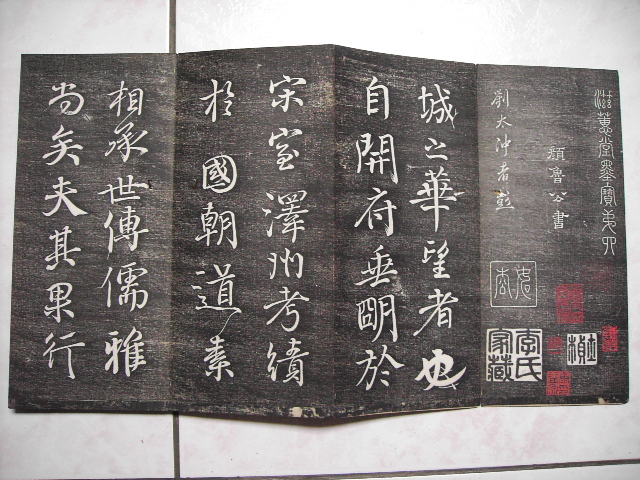 滋蕙堂墨寶弟六
顏魯公書
劉太沖者彭
城之華望者也
自開府垂朙於
宋室澤州考績
於 國朝道素
相承世傳儒雅
尚矣夫其果行
李氏
家藏